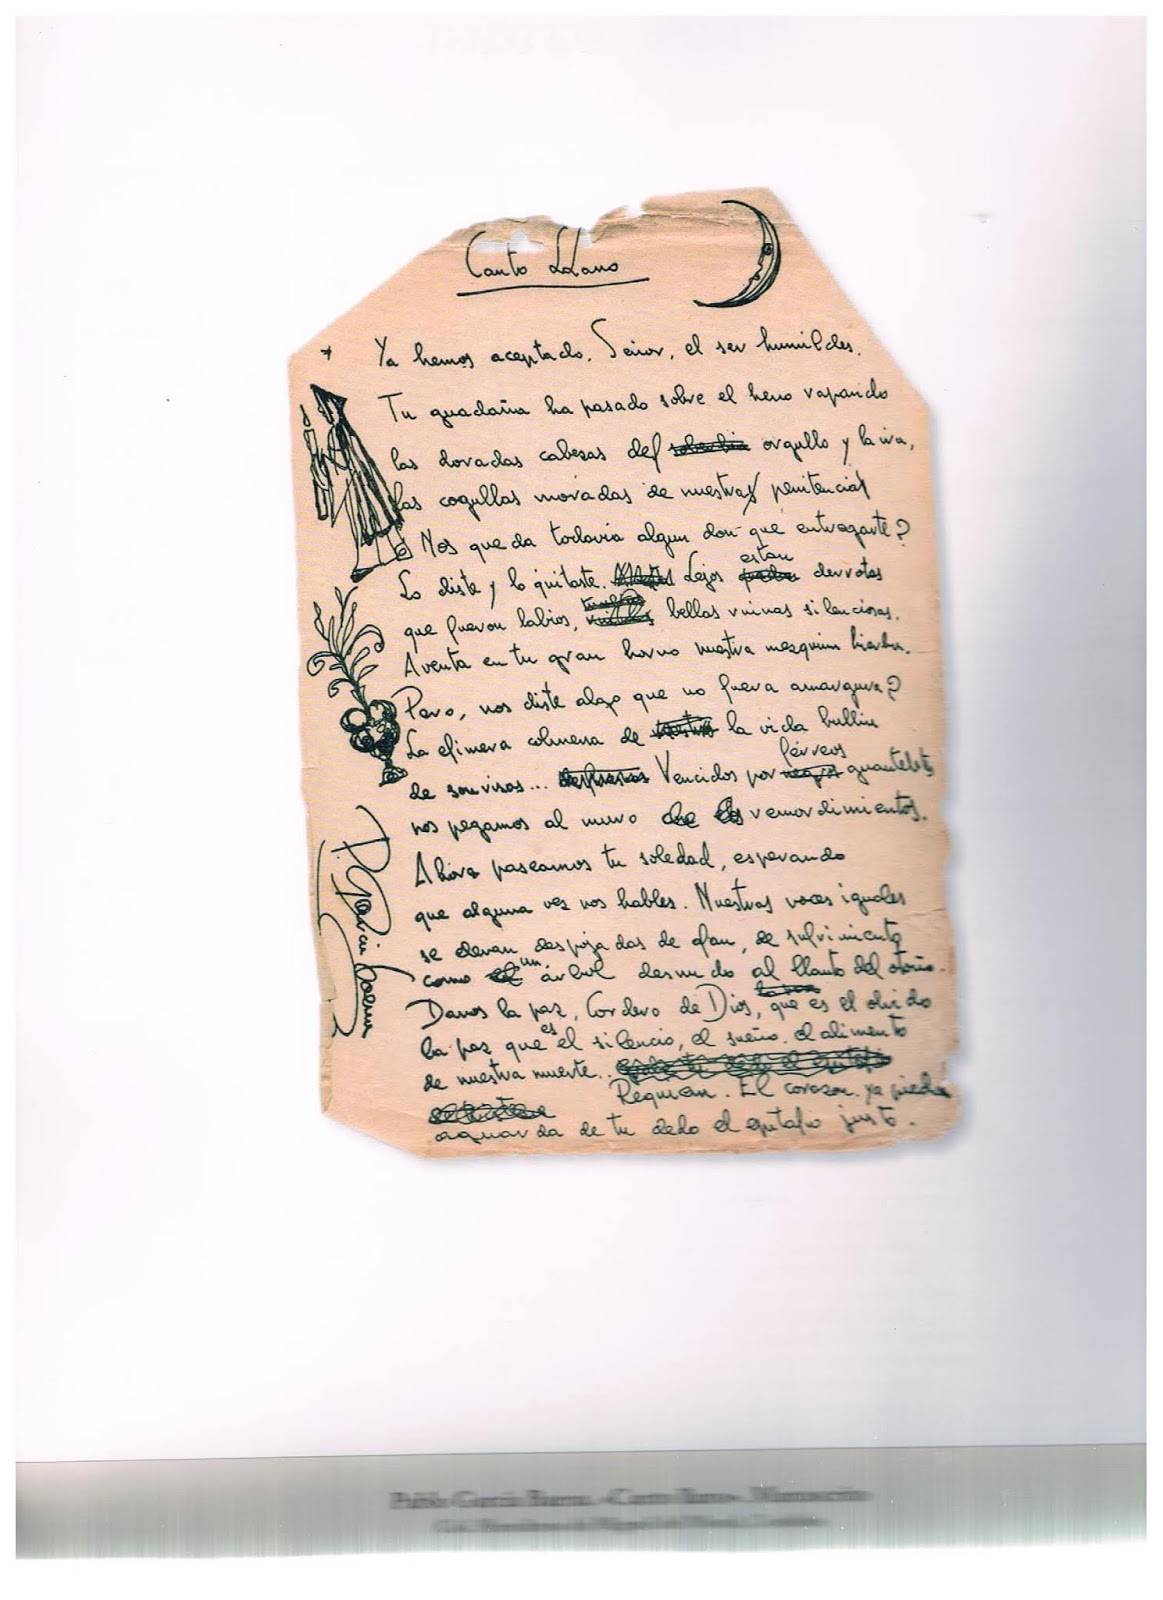 Canto Llano
Ya hemos aceptado, Señor, el ser humildes.
Tu guadaña ha pasado sobre el heno rapando
las doradas cabezas del soberbia orgullo y la ira,
las cogullas moradas de nuestras penitencias
Nos queda todavia algun don que entregarte?
estan
Lo diste y lo quitaste. Lejos derrotas
que fueron labios, bellas ruinas silenciosas.
Aventa en tu gran horno nuestra mezquina hierba.
Pero, nos diste algo que no fuera amargura?
La efimera colmena de la vida bullia
férreos
de sonrisas... Vencidos por negros guanteletes
nos pegamos al muro de los remordimientos.
Ahora paseamos tu soledad, esperando
que alguna vez nos hables. Nuestras voces iguales
se elevan despojadas de afan, de sufrimiento
un
como el árbol desnudo al llanto del otoño.
Danos la paz, Cordero de Dios, que es el olvido
es
la paz que el silencio, el sueño, el alimento
de nuestra muerte.
Requiem. El corazon ya piedra
aguarda de tu dedo el epitafio justo.
P. García Baena
Pablo García Baena. «Canto llano». Manuscrito